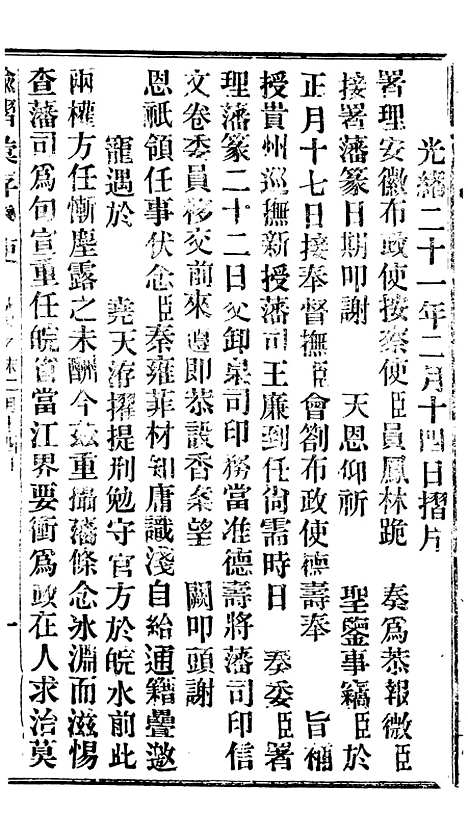 光緒二十一年二月十四日摺片
署理安徽布政使按察使臣員鳳林跪　奏爲恭報微臣
接署藩篆日期叩謝　天恩仰祈　聖鑒事竊臣於
正月十七日接奉督撫臣會劄布政使德壽奉　旨補
授貴州巡撫新授藩司王廉到任尙需時日　奏委臣署
理藩篆二十二日交卸臬司印務當准德壽將藩司印信
文卷委員移交前來臣遵卽恭設香案望　闕叩頭謝
恩祇領任事伏念臣秦雍菲材知庸識淺自紿通籍疊邀
寵遇於　堯天洊擢提刑勉守官方於皖水前此
兩權方任慚塵露之未酬今茲重攝藩條念氷淵而滋惕
查藩司爲旬宣重任皖省當江界要衝爲政在人求治莫
諭摺
一